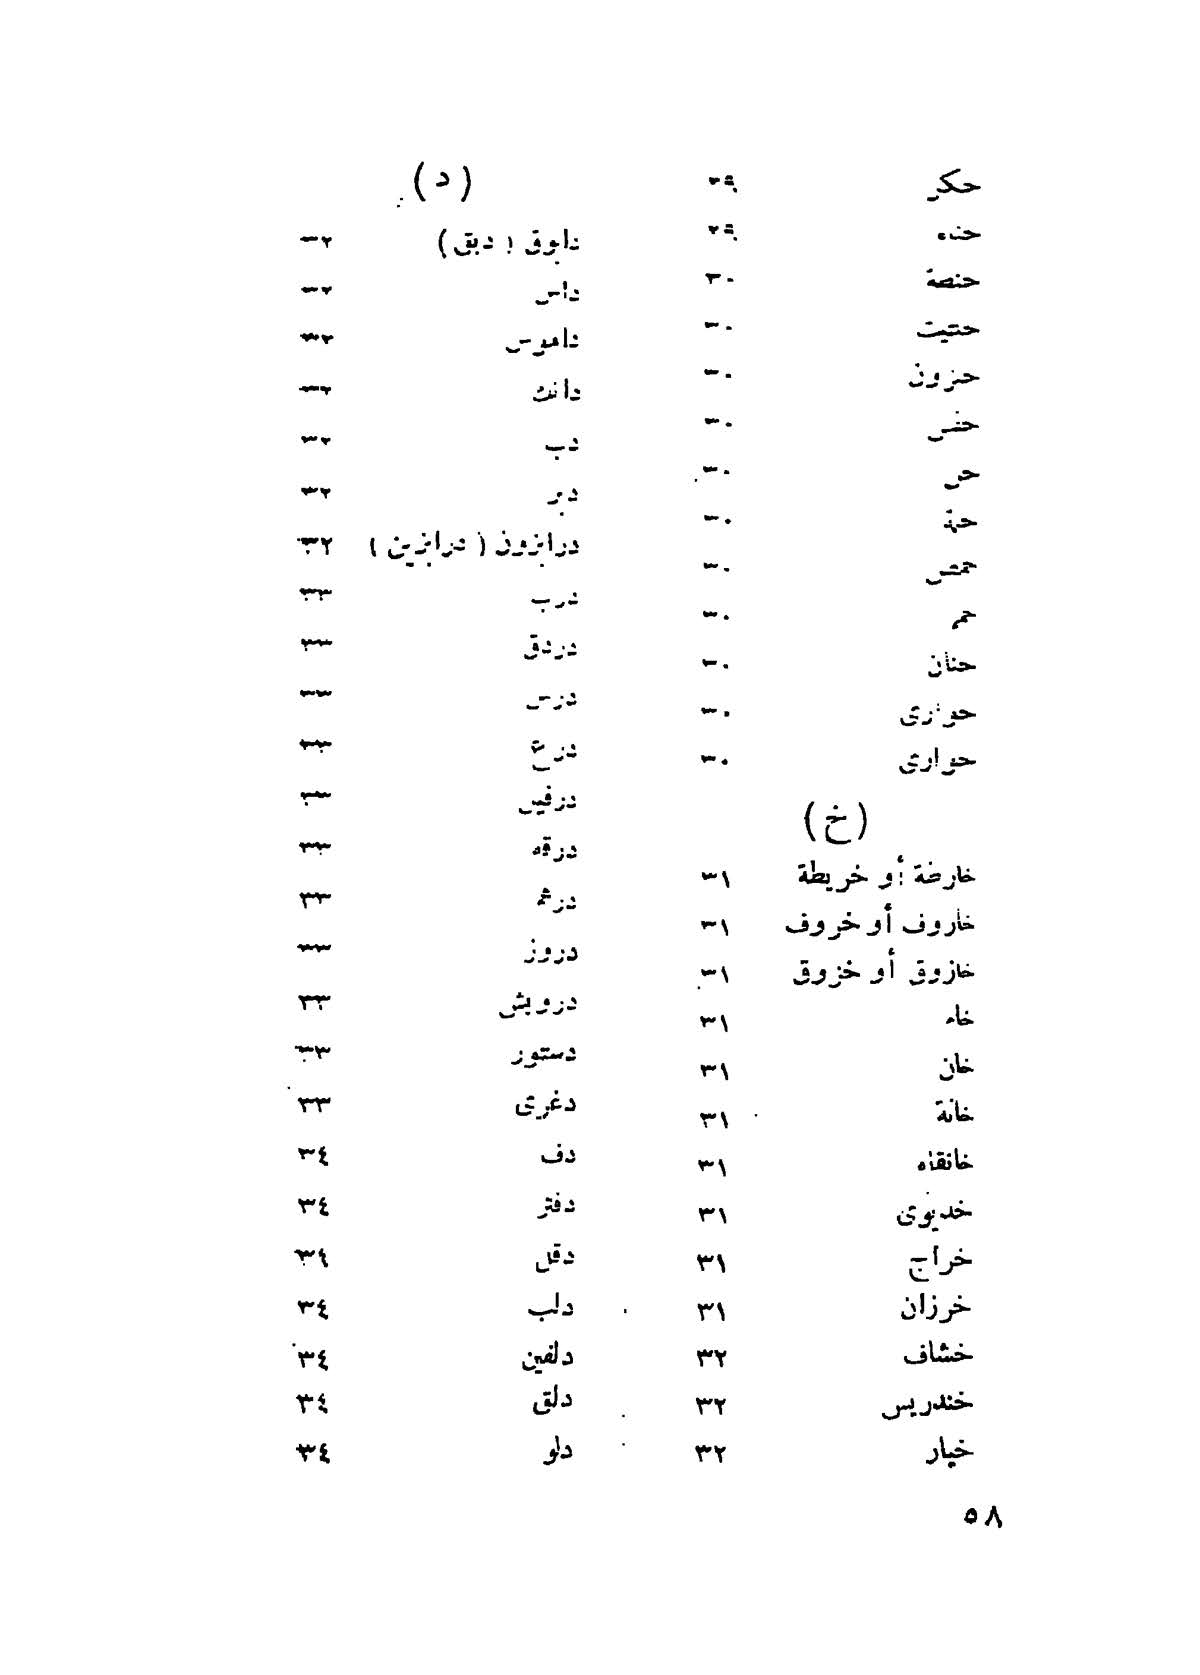 حكر ٢٩
٢٩
٣٠
حلتيت ٣٠
حلزون ٣٠
٣٠
٣٠
٣٠
حمص ٣٠
٣٠
حنان ٣٠
٣٠
حوارى ٣٠
(خ)
خارطة أو خريطة ٣١
خاروف أو خروف ٣١
خازوق أو خزوق ٣١
خام ٣١
خان ٣١
خانة ٣١
خانقاه ٣١
خديوى ٣١
خراج ٣١
خرزان ٣١
خشاف ٣٢
خندريس ٣٢
خيار ٣٢
(د)
دابوق (دبق) ٣٢
داس ٣٢
داموس ٣٢
دانق ٣٢
دب ٣٢
دبر ٣٢
درابزون (درابزين) ٣٢
درب ٣٣
دردق ٣٣
درس ٣٣
درع ٣٣
درفيل ٣٣
درقه ٣٣
٣٣
دروز ٣٣
درويش ٣٣
دستور ٣٣
دغرى ٣٣
دف ٣٤
دفتر ٣٤
دقل ٣٤
دلب ٣٤
دلفين ٣٤
دلق ٣٤
دلو ٣٤
٥٨